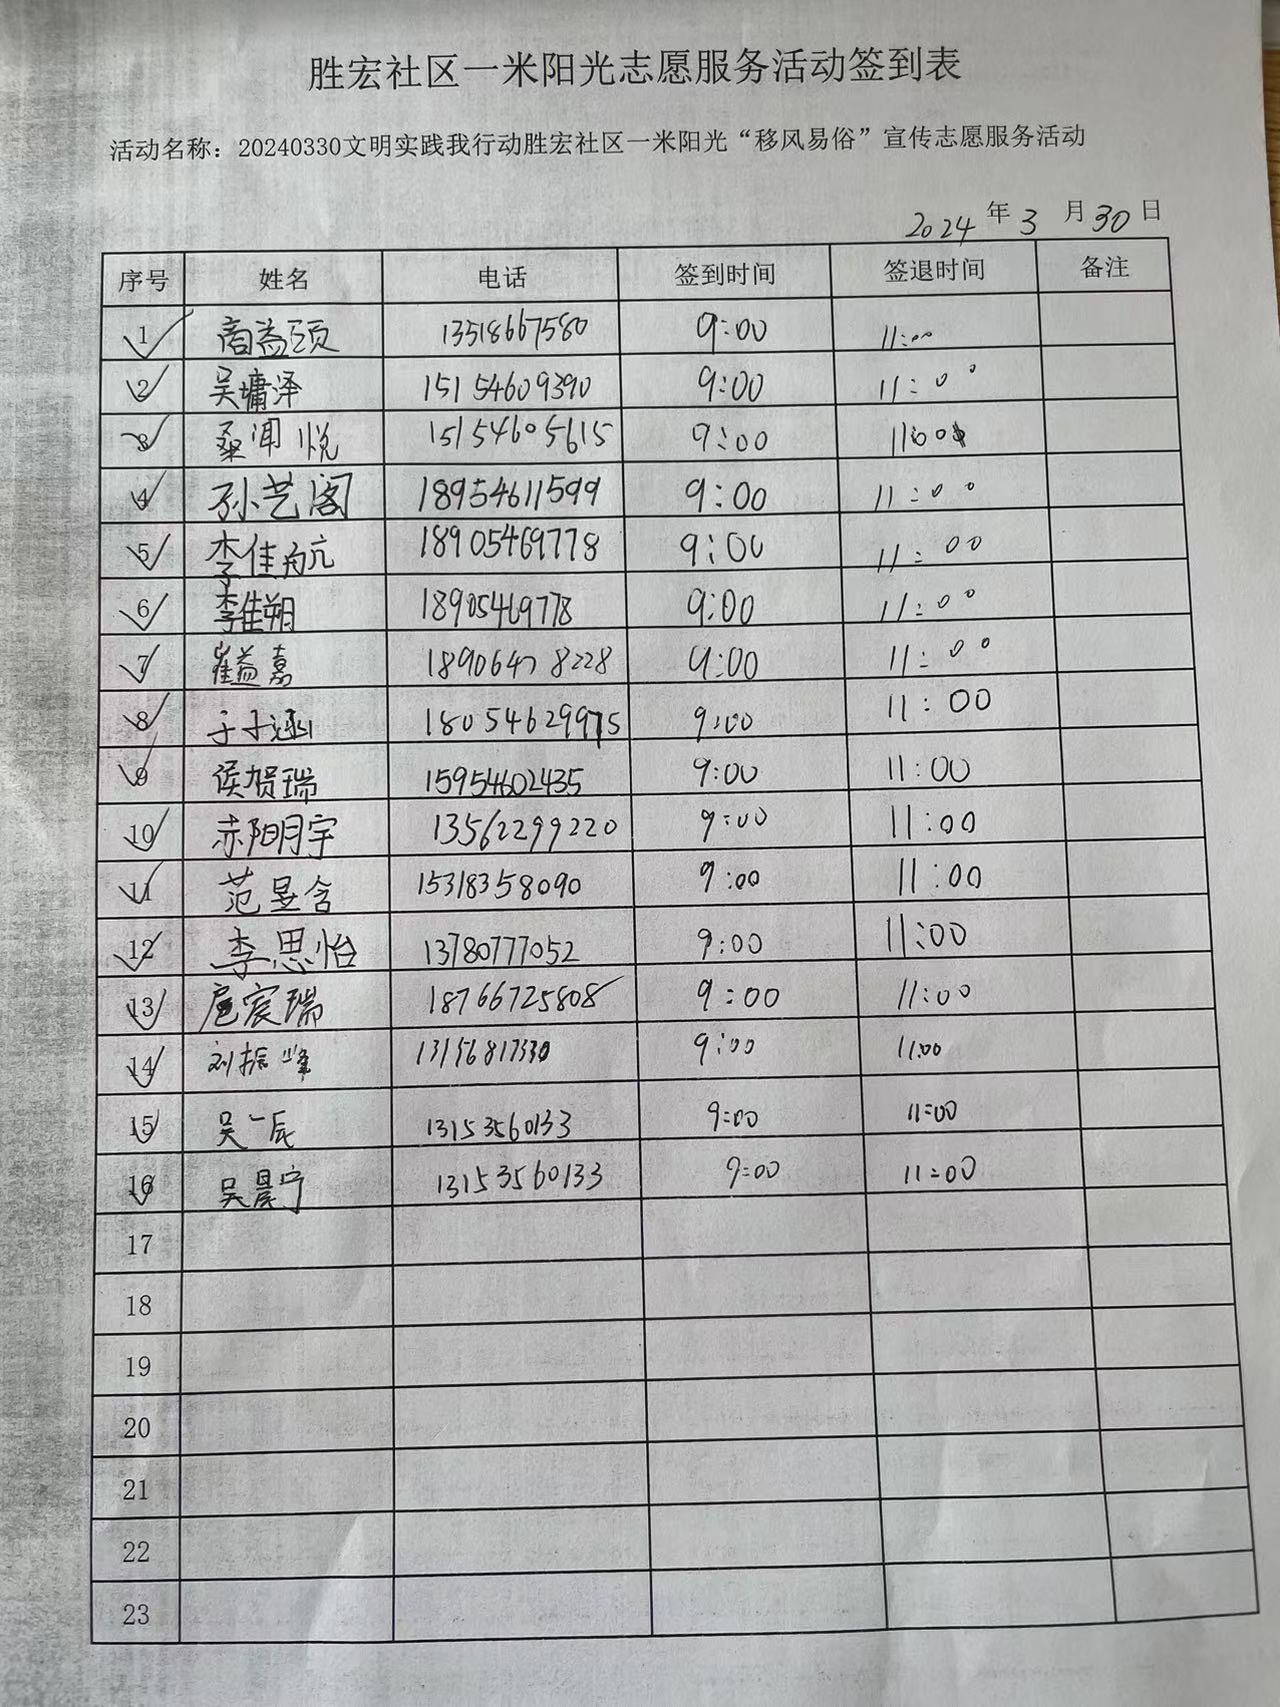 胜宏社区一米阳光志愿服务活动签到表
活动名称：20240330文明实践我行动胜宏社区一米阳光“移风易俗”宣传志愿服务活动
2024 年 3 月 30 日
序号 姓名 电话 签到时间 签退时间 备注
1 商益颐 13518667580 9:00 11:00
2 吴墉泽 15154609390 9:00 11:00
3 桑闻悦 15154605615 9:00 11:00
4 孙艺阁 18954611599 9:00 11:00
5 李佳航 18905469778 9:00 11:00
6 李佳朔 18905469778 9:00 11:00
7 崔益嘉 18906478228 9:00 11:00
8 于子涵 18054629975 9:00 11:00
9 侯贺瑞 15954602435 9:00 11:00
10 赤阳明宇 13562299220 9:00 11:00
11 范昱含 15318358090 9:00 11:00
12 李思怡 13780777052 9:00 11:00
13 扈宸瑞 18766725808 9:00 11:00
14 刘振峰 9:00 11:00
15 吴一辰 13153560133 9:00 11:00
16 吴晨宁 13153560133 9:00 11:00
17
18
19
20
21
22
23